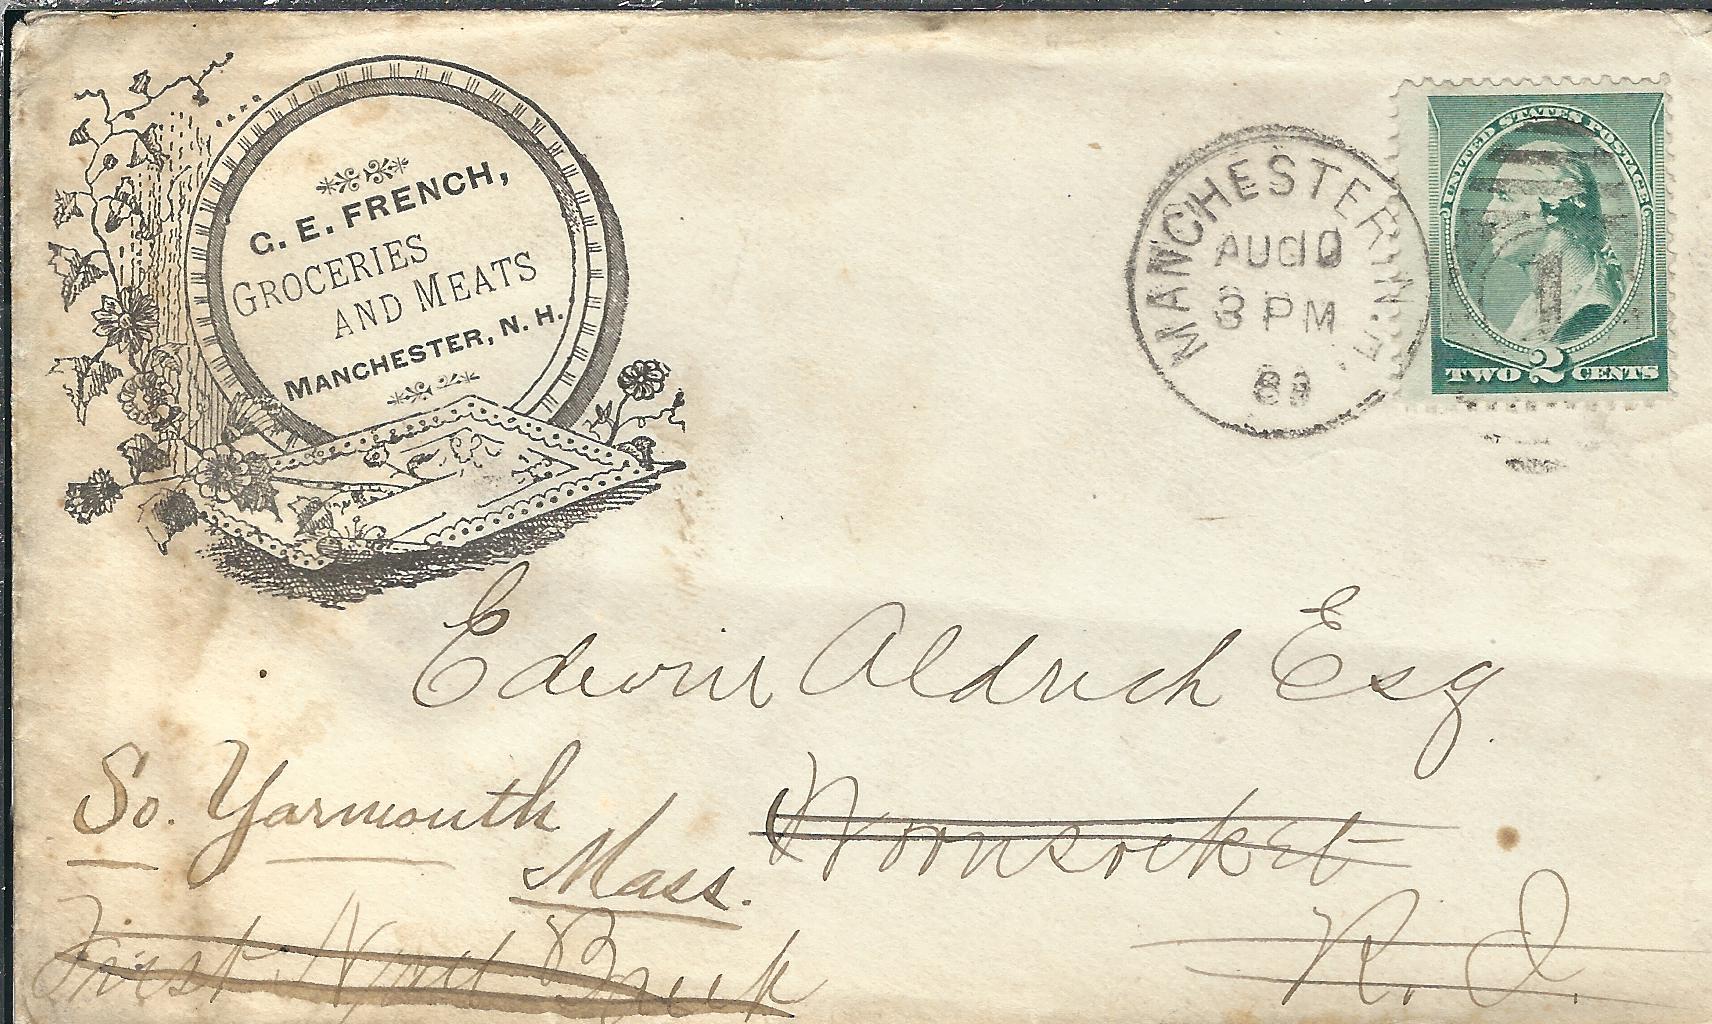 C. E. FRENCH,
GROCERIES
AND MEATS
MANCHESTER, N. H.
MANCHESTER, N.H.
AUG 10
3 PM
89
1
UNITED STATES POSTAGE
TWO 2 CENTS
Edwin Aldrich Esq
So. Yarmouth
Mass.
Woonsocket
R. I.